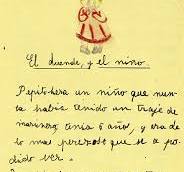 El duende, y el niño.
Pepito hera un niño que nun-
ta habia tenido un traje de
marinero, tenia 6 años, y era de
lo mas perezoso que se a po-
dido ver.